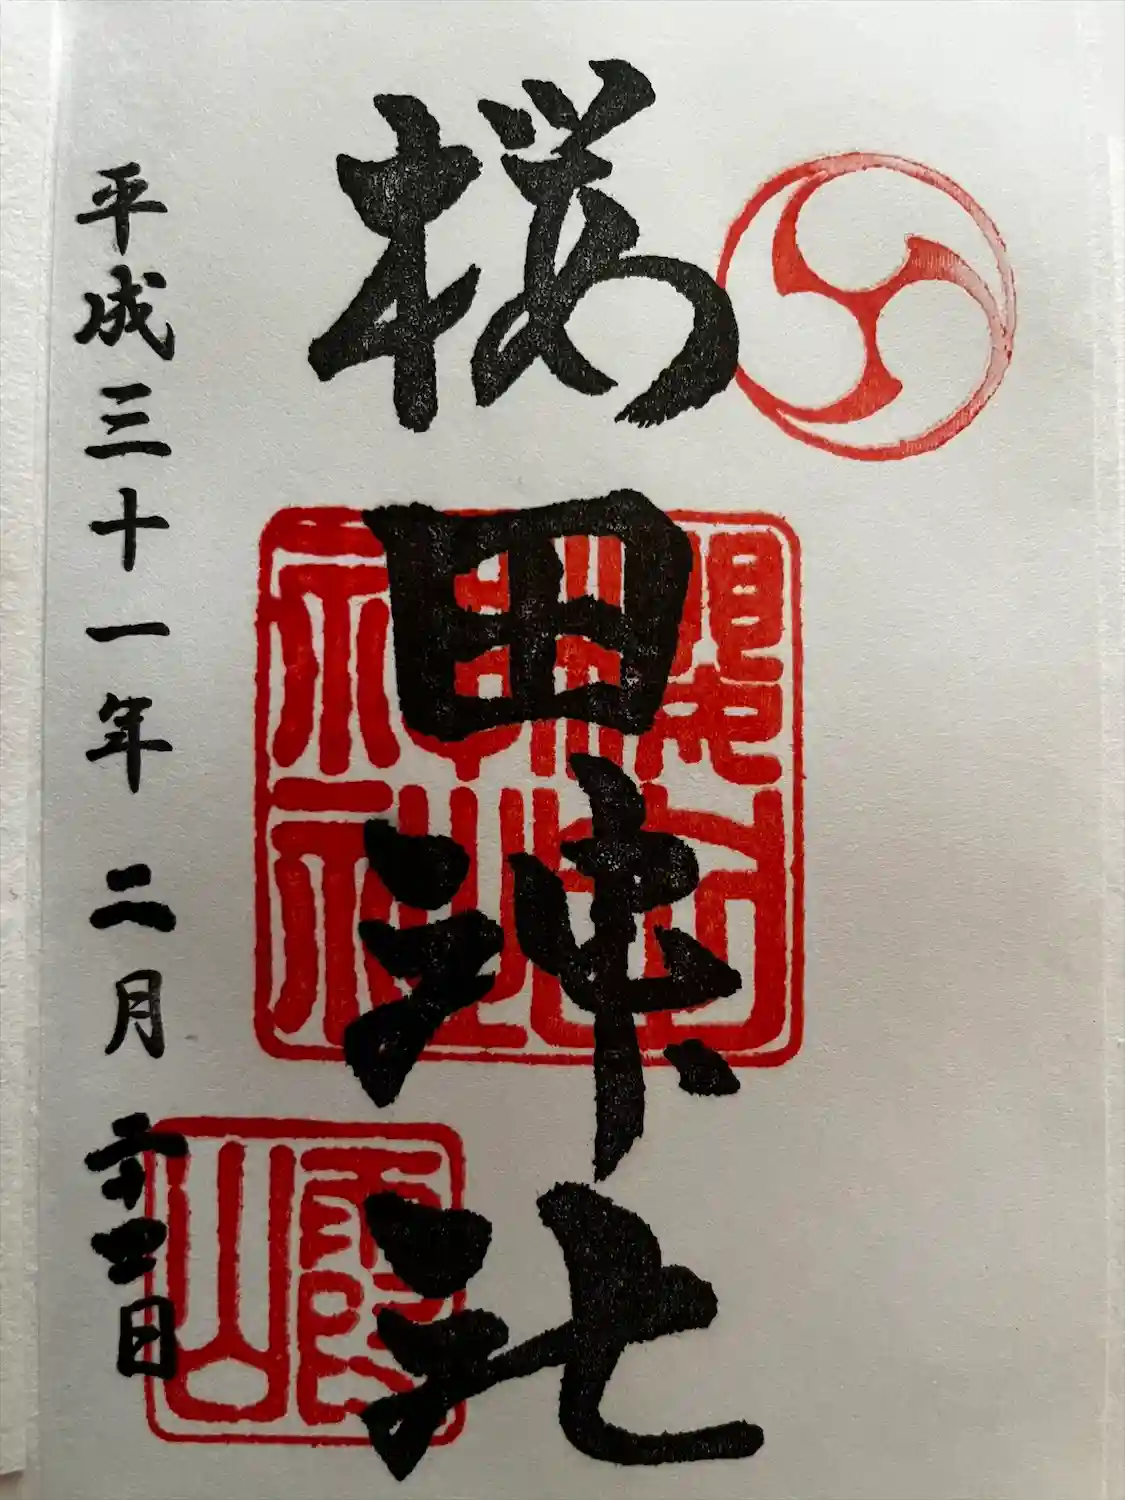 桜田神社
平成三十一年二月二十二日
霞山